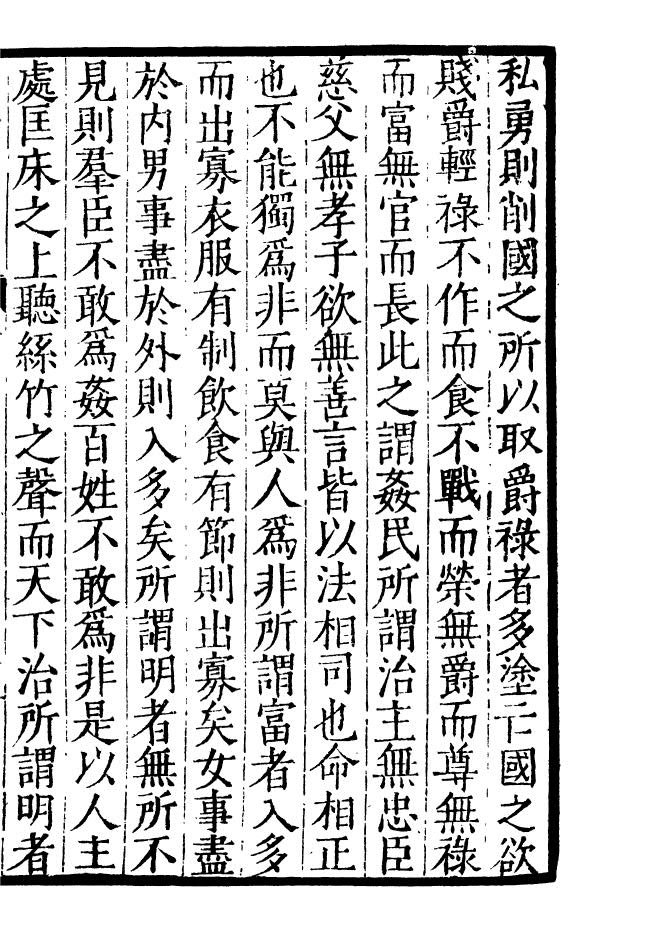 私勇則削國之所以取爵祿者多塗亡國之欲
賤爵輕祿不作而食不戰而榮無爵而尊無祿
而富無官而長此之謂姦民所謂治主無忠臣
慈父無孝子欲無善言皆以法相司也命相正
也不能獨爲非而莫與人爲非所謂富者入多
而出寡衣服有制飲食有節則出寡矣女事盡
於内男事盡於外則入多矣所謂明者無所不
見則羣臣不敢爲姦百姓不敢爲非是以人主
處匡床之上聽絲竹之聲而天下治所謂明者